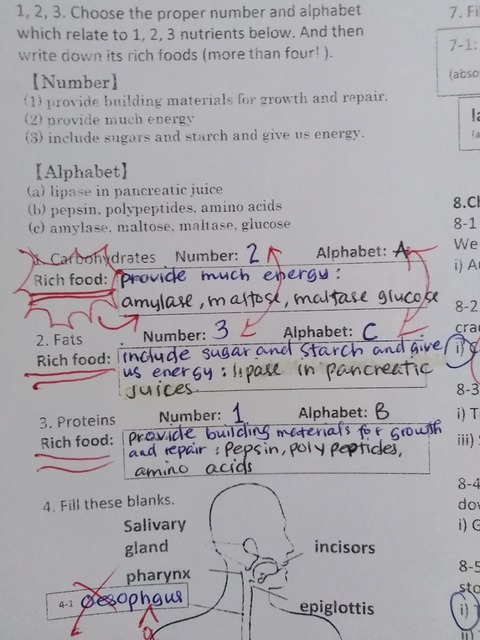 1, 2, 3. Choose the proper number and alphabet
which relate to 1, 2, 3 nutrients below. And then
write down its rich foods (more than four! ).
【Number】
(1) provide building materials for growth and repair.
(2) provide much energy
(3) include sugars and starch and give us energy.
【Alphabet】
(a) lipase in pancreatic juice
(b) pepsin, polypeptides, amino acids
(c) amylase, maltose, maltase, glucose
1. Carbohydrates Number: 2 Alphabet: A
Rich food: provide much energy :
amylase, maltose, maltase glucose
2. Fats Number: 3 Alphabet: C
Rich food: include sugar and starch and give
us energy : lipase in pancreatic
juices.
3. Proteins Number: 1 Alphabet: B
Rich food: provide building materials for growth
and repair : Pepsin, poly peptides,
amino acids
4. Fill these blanks.
Salivary
gland
incisors
pharynx
4-1 oesophgus
epiglottis
7. Fi
7-1:
(abso
la
8.Ch
8-1
We
i) A
8-2
crac
i)
8-3
i) T
iii)
8-4
dov
i) G
8-5
sto
i)